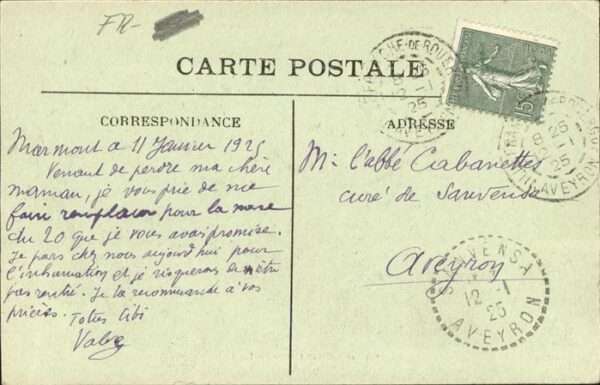 FR-
CARTE POSTALE
CORRESPONDANCE
ADRESSE
Marmont a 11 Janvier 1925
Venant de perdre ma chère
maman, je vous prie de me
faire remplacer pour la messe
du 20 que je vous avais promise.
Je pars chez nous aujourd'hui pour
l'inhumation et je risquerais de n'être
pas rentré. Je la recommande à vos
prières.
Totus tibi
M. l'abbé Cabanettes
curé de Sauvensa
Aveyron
15
SAUVENSA
12 -1
25
AVEYRON
8
25
AVEYRON